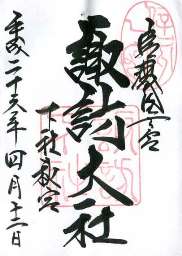 信濃國一之宮
諏訪大社
下社秋宮
平成二十六年四月十二日